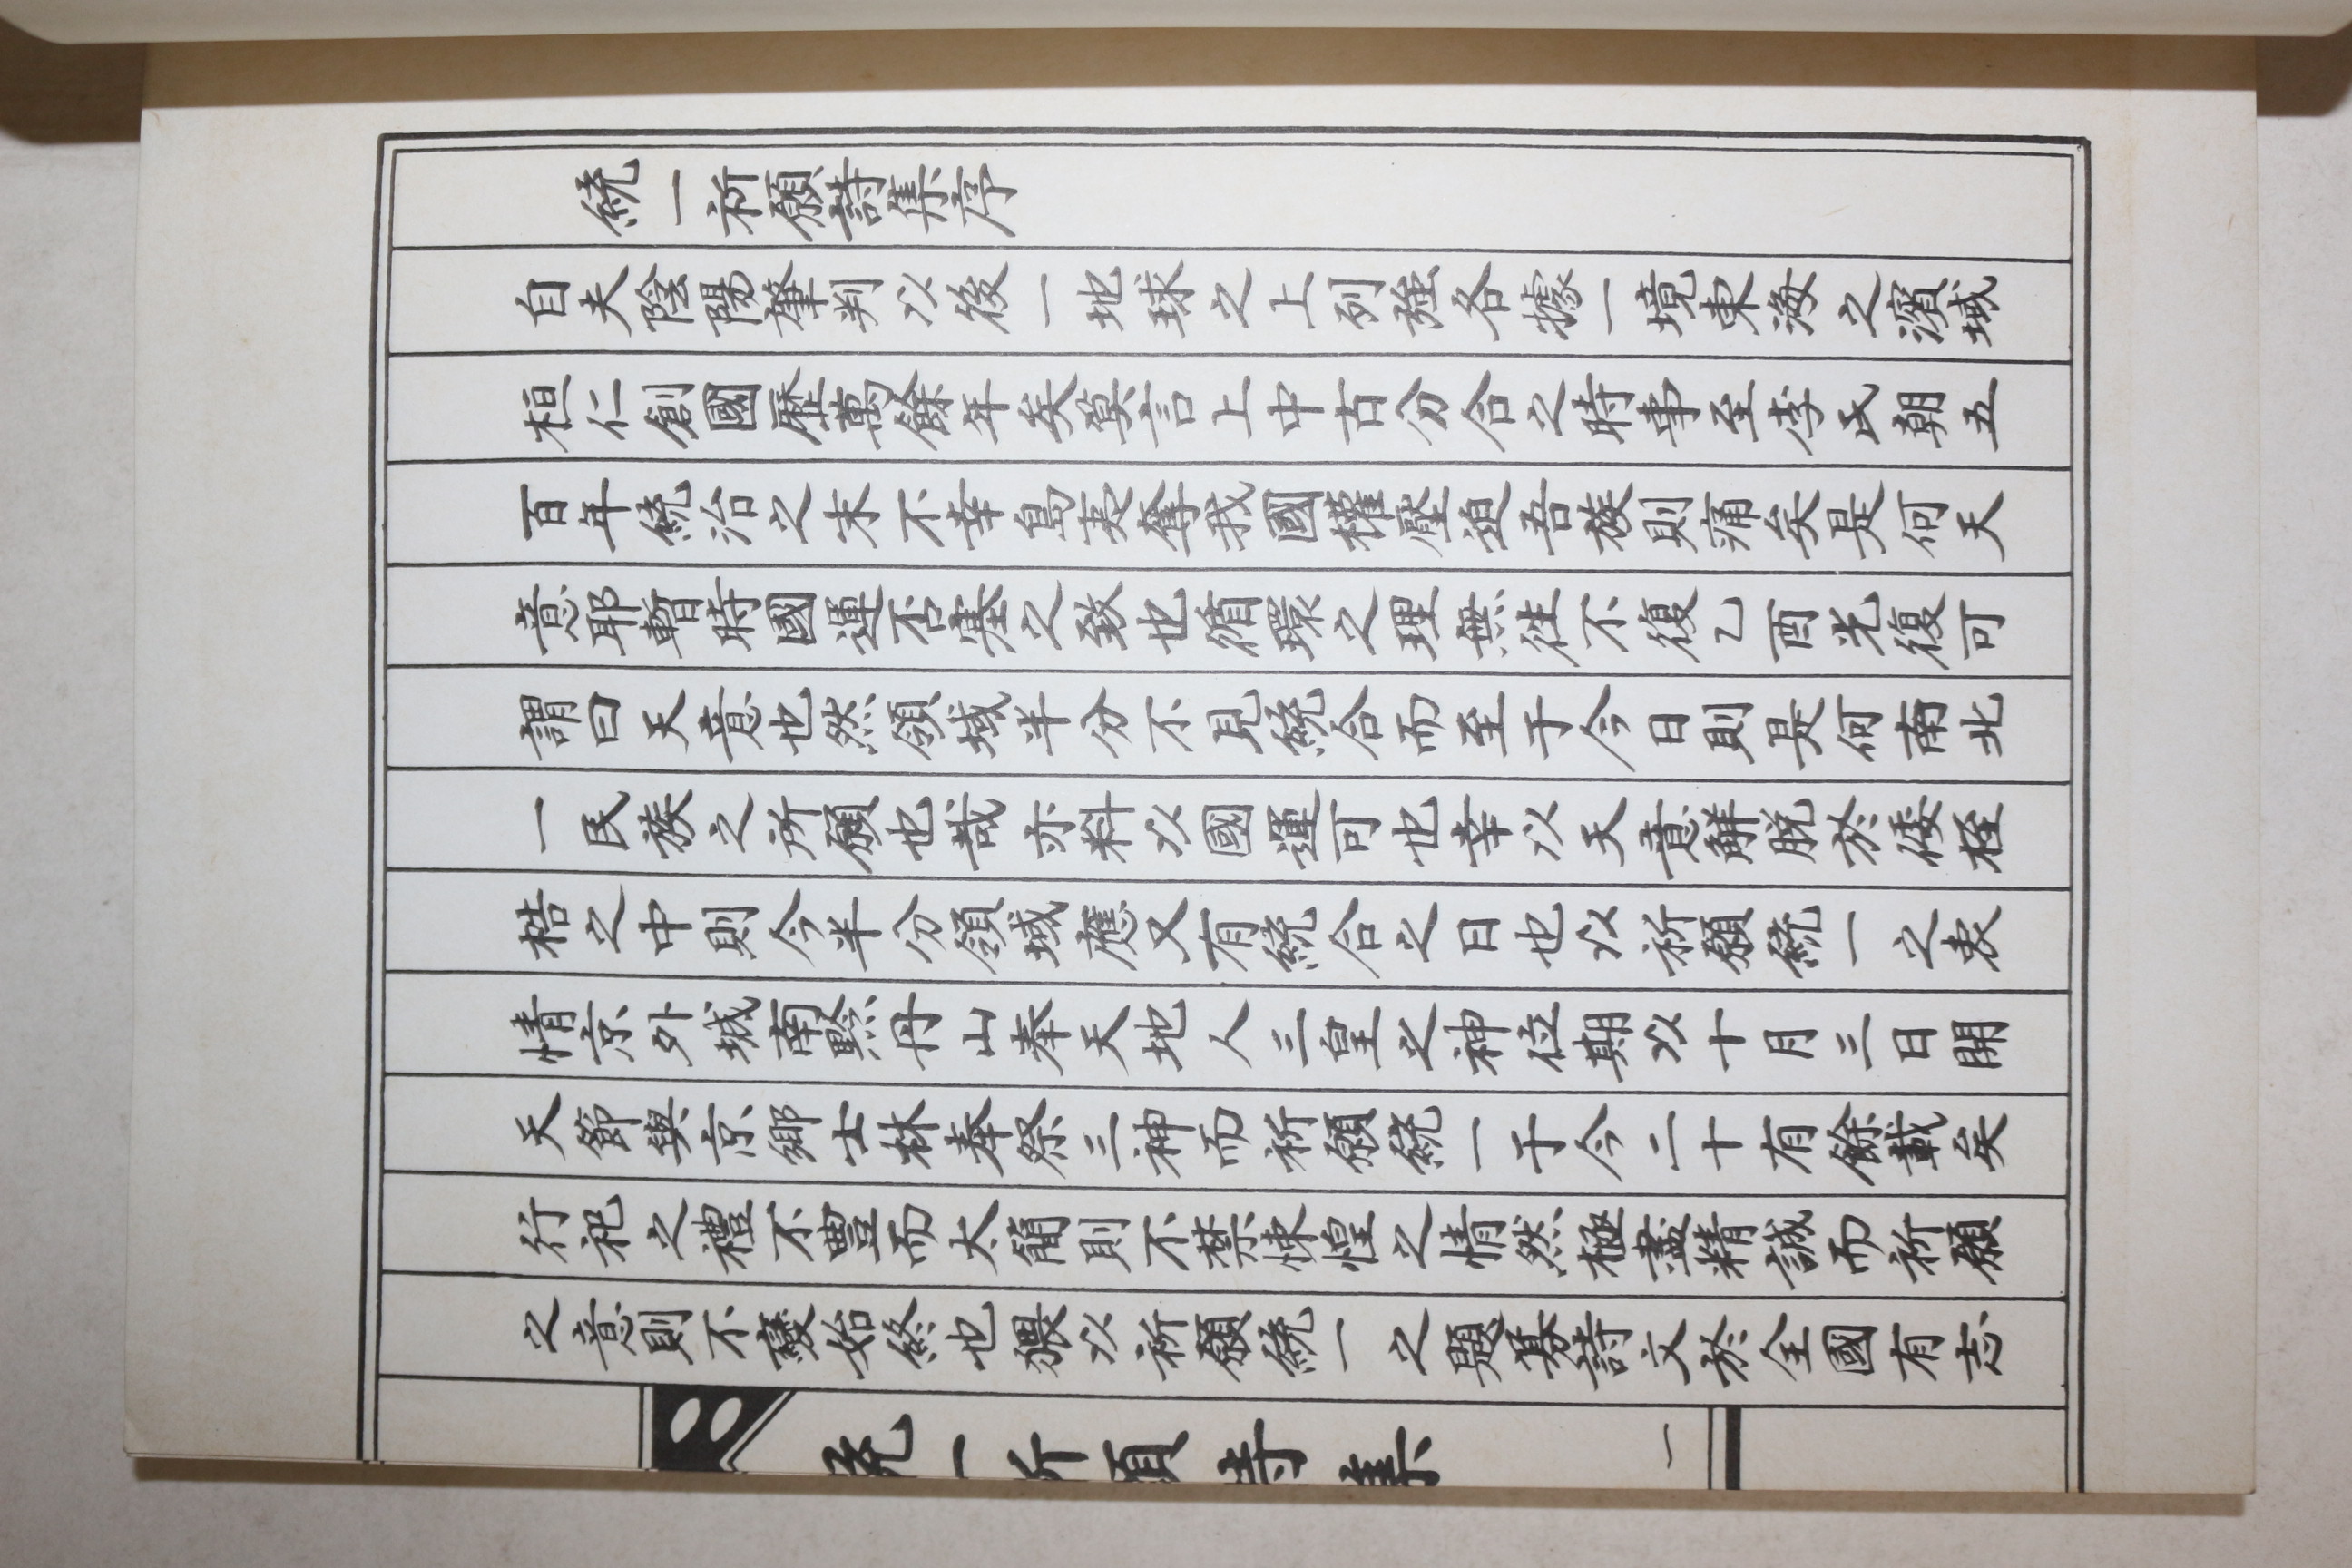 統一祈願詩集序
自夫陰陽肇判以後一地球之上列強各據一境東海之濱域
桓仁創國歷萬餘年矣莫言上中古分合之時事至李氏朝五
百年統治之末不幸島夷奪我國權壓迫吾族則痛矣是何天
意耶暫時國運否塞之致也循環之理無徃不復乙酉光復可
謂曰天意也然領域半分不見統合而至于今日則是何南北
一民族之所願也哉亦料以國運可也幸以天意解脱於倭桎
梏之中則今半分領域應又有統合之日也以祈願統一之衷
情京外城南黔丹山奉天地人三皇之神位期以十月三日開
天節與京鄉士林奉祭三神而祈願統一于今二十有餘載矣
行祀之禮不豐而太簡則不禁悚惶之情然極盡精誠而祈願
之意則不變始終也猥以祈願統一之題募詩文於全國有志
統一祈願詩集
一